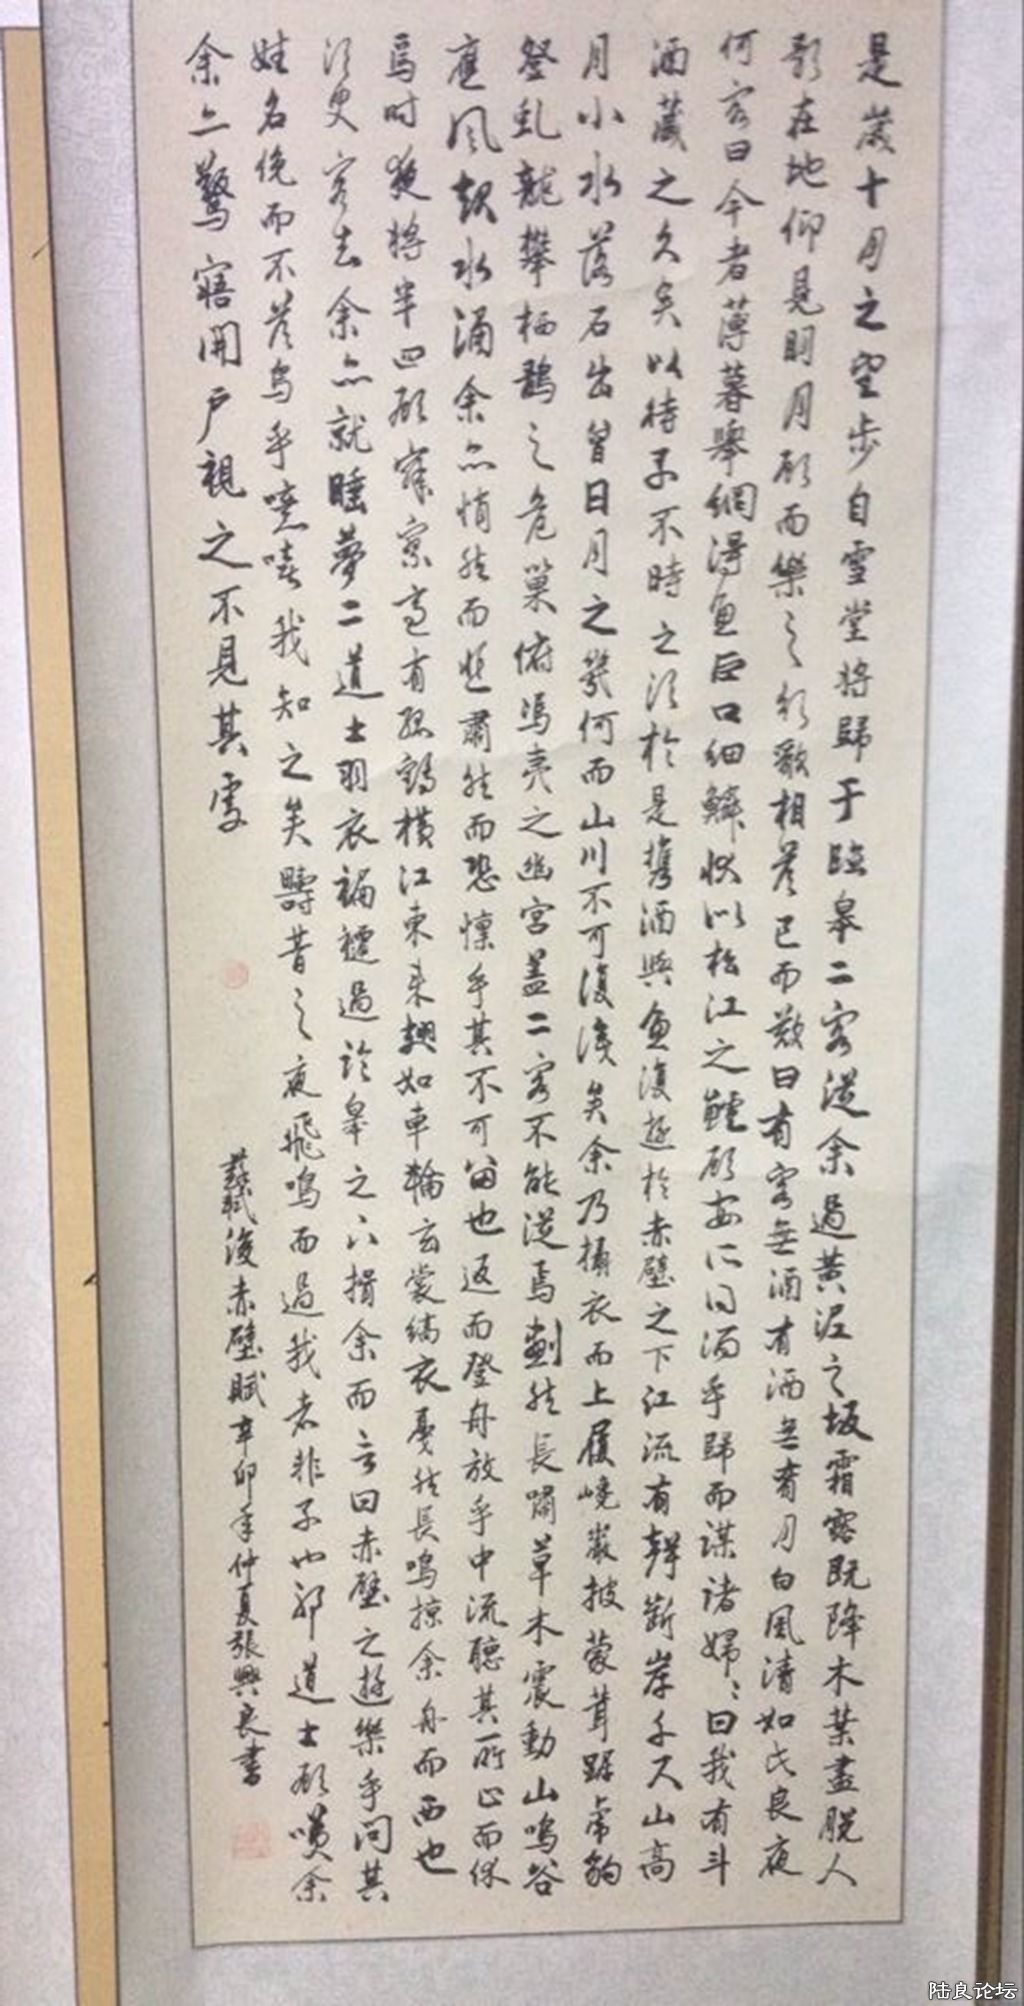 是歲十月之望步自雪堂將歸于臨皋二客從余過黃泥之坂霜露既降木葉盡脫人
影在地仰見明月顧而樂之行歌相答已而歎曰有客無酒有酒無肴月白風清如此良夜
何客曰今者薄暮舉網得魚巨口細鱗狀似松江之鱸顧安所得酒乎歸而謀諸婦〻曰我有斗
酒藏之久矣以待子不時之須於是攜酒與魚復遊於赤壁之下江流有聲斷岸千尺山高
月小水落石出曾日月之幾何而山川不可復識矣余乃攝衣而上履巉巖披蒙茸踞虎豹
登虬龍攀栖鶻之危巢俯馮夷之幽宮蓋二客不能從焉劃然長嘯草木震動山鳴谷
應風起水涌余亦悄然而悲肅然而恐懍乎其不可留也返而登舟放乎中流聽其所止而休
焉時夜將半四顧寂寥適有孤鶴橫江東來翅如車輪玄裳縞衣戛然長鳴掠余舟而西也
須臾客去余亦就睡夢二道士羽衣蹁躚過臨皋之下揖余而言曰赤壁之遊樂乎問其
姓名俛而不答烏乎噫嘻我知之矣疇昔之夜飛鳴而過我者非子也耶道士顧笑余
余亦驚寤開戶視之不見其處
蘇軾後赤壁賦辛卯年仲夏張興良書
陆良论坛